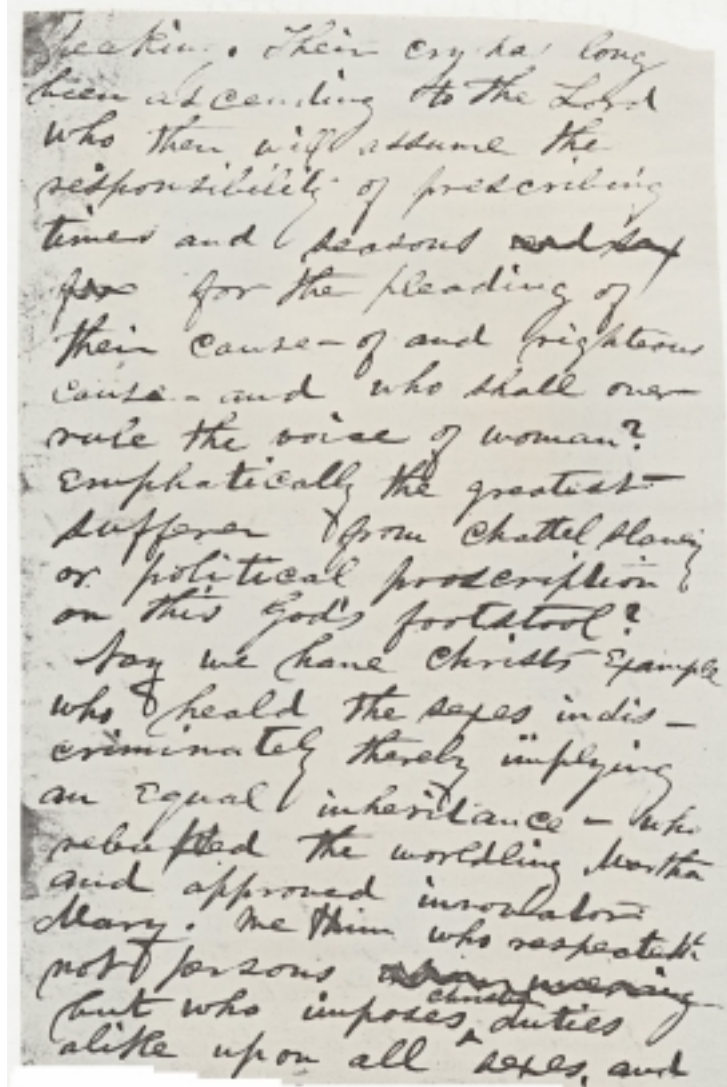 speaking. Their cry has long
been ascending to the Lord
who then will assume the
responsibility of prescribing
times and seasons and say
for for the pleading of
their cause – of and righteous
cause – and who shall over–
rule the voice of woman?
Emphatically the greatest
sufferer from chattel slavery
or political proscription
on this God's footstool?
Nay we have Christs Example
who heald the sexes indis–
criminately thereby implying
an Equal inheritance – who
rebuffed the worldling Martha
and approved innovator
Mary.
who respecteth
not persons
but who imposes christian duties
alike upon all sexes, and